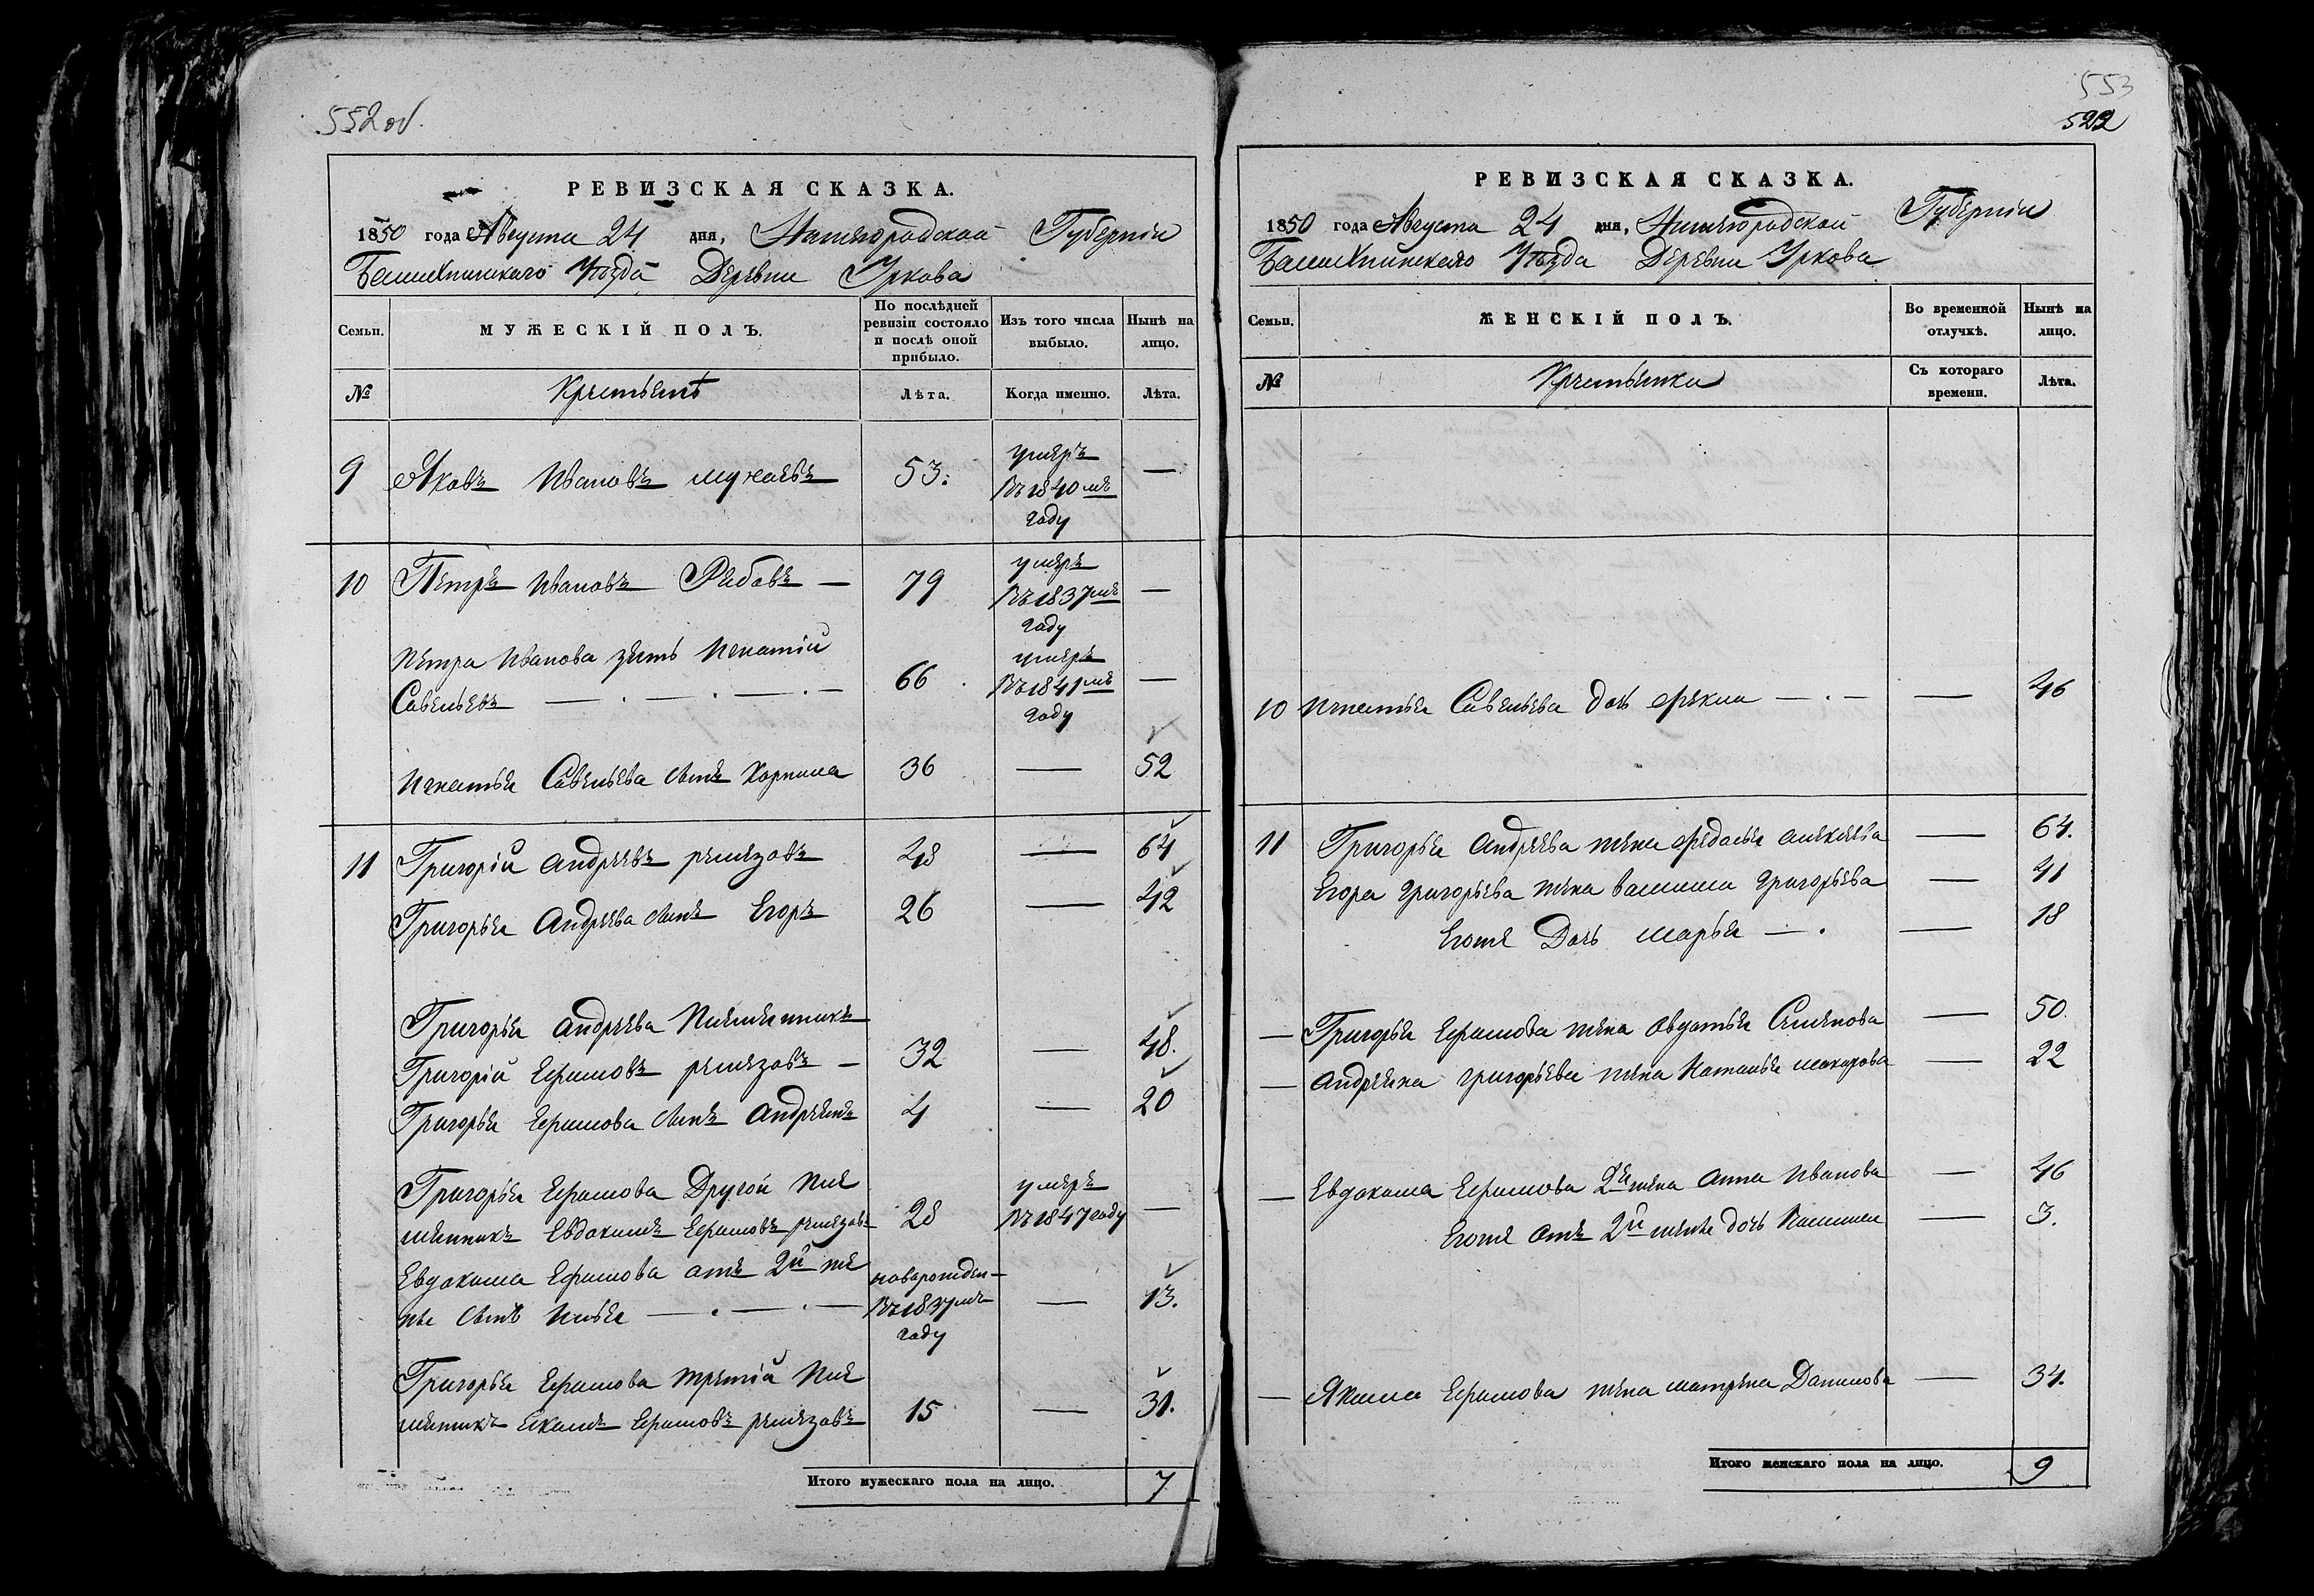 552 об.
РЕВИЗСКАЯ СКАЗКА.
1850 года Августа 24 дня, Нижегородской Губерніи
Уѣзда Деревни Уркова
Семьи.
МУЖЕСКІЙ ПОЛЪ.
По послѣдней ревизіи состояло и послѣ оной прибыло.
Изъ того числа выбыло.
Нынѣ на лицо.
№
Лѣта.
Когда именно.
Лѣта.
9 Яковъ Ивановъ 53. умеръ въ 1840мъ году —
10 Петръ Ивановъ Рябовъ — 79 умеръ въ 1837мъ году —
Петра Иванова зять Игнатій
Савельевъ — 66 умеръ въ 1841мъ году —
Игнатья Савельева сынъ 36 — 52
11 Григорій Андреевъ ремезовъ 48 — 64
Григорья Андреева сынъ Егоръ 26 — 42
Григорья Андреева племянникъ
Григорій Ефимовъ ремезовъ — 32 — 48.
Григорья Ефимова сынъ Андреянъ 4 — 20
Григорья Ефимова Другой пле
мянникъ Евдокимъ Ефимовъ ремезовъ 28 умеръ въ 1847 году —
Евдокима Ефимова отъ 2й же
ны сынъ Илья — новорожден въ 1837мъ году — 13.
Григорья Ефимова третій пле
мянникъ Екимъ Ефимовъ ремезовъ 15 — 31.
Итого мужескаго пола на лицо. 7
553
522
РЕВИЗСКАЯ СКАЗКА.
1850 года Августа 24 дня, Нижегородской Губерніи
Уѣзда Деревни Уркова
Семьи.
ЖЕНСКІЙ ПОЛЪ.
Во временной отлучкѣ.
Нынѣ на лицо.
№
Крестьянки
Съ котораго времени.
Лѣта.
10 Игнатья Савельева дочь Фекла — — 46
11 Григорья Андреева жена Федосья Алексеева — 64.
Егора Григорьева жена Василиса Григорьева — 41
Егоже Дочь Марья — — 18
— Григорья Ефимова жена Авдотья Семенова — 50.
— Андреяна Григорьева жена Наталья Макарова — 22
— Евдокима Ефимова 2я жена Анна Иванова — 46
Егоже отъ 2й жены дочь — 3.
— Якима Ефимова жена Матрена Данилова — 34.
Итого женскаго пола на лицо. 9